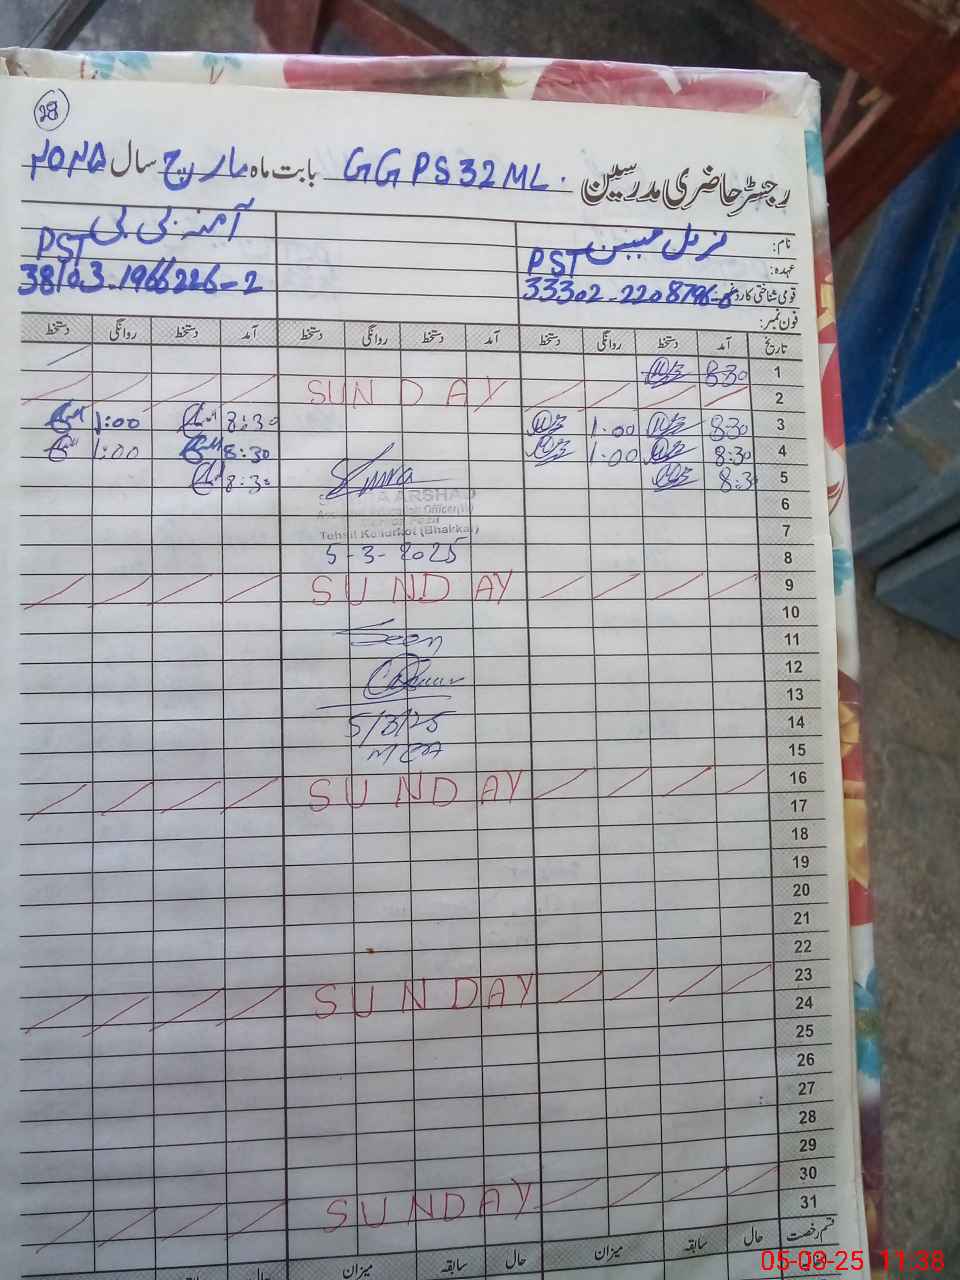 28
رجسٹر حاضری مدرسین GGPS 32 ML. بابت ماہ مارچ سال ۲۰۲۵
نام: آمنہ بی بی
عہدہ: PST PST
قومی شناختی کارڈ نمبر 38103-1966226-2
فون نمبر:
تاریخ آمد دستخط روانگی دستخط آمد دستخط روانگی دستخط آمد دستخط روانگی دستخط
1 8:30
2 SUNDAY
3 8:30 1:00 8:30 1:00
4 8:30 1:00 8:30 1:00
5 8:30 8:30
6
ARSHAD
7
Tehsil Kallurkot (Bhakkar)
8 5-3-2025
9 SUNDAY
10
11 Seen
12
13
14 5/3/25
15 MEA
16 SUNDAY
17
18
19
20
21
22
23 SUNDAY
24
25
26
27
28
29
30 SUNDAY
31
قسم رخصت حال سابقہ میزان حال سابقہ میزان حال سابقہ
05-03-25 11:38